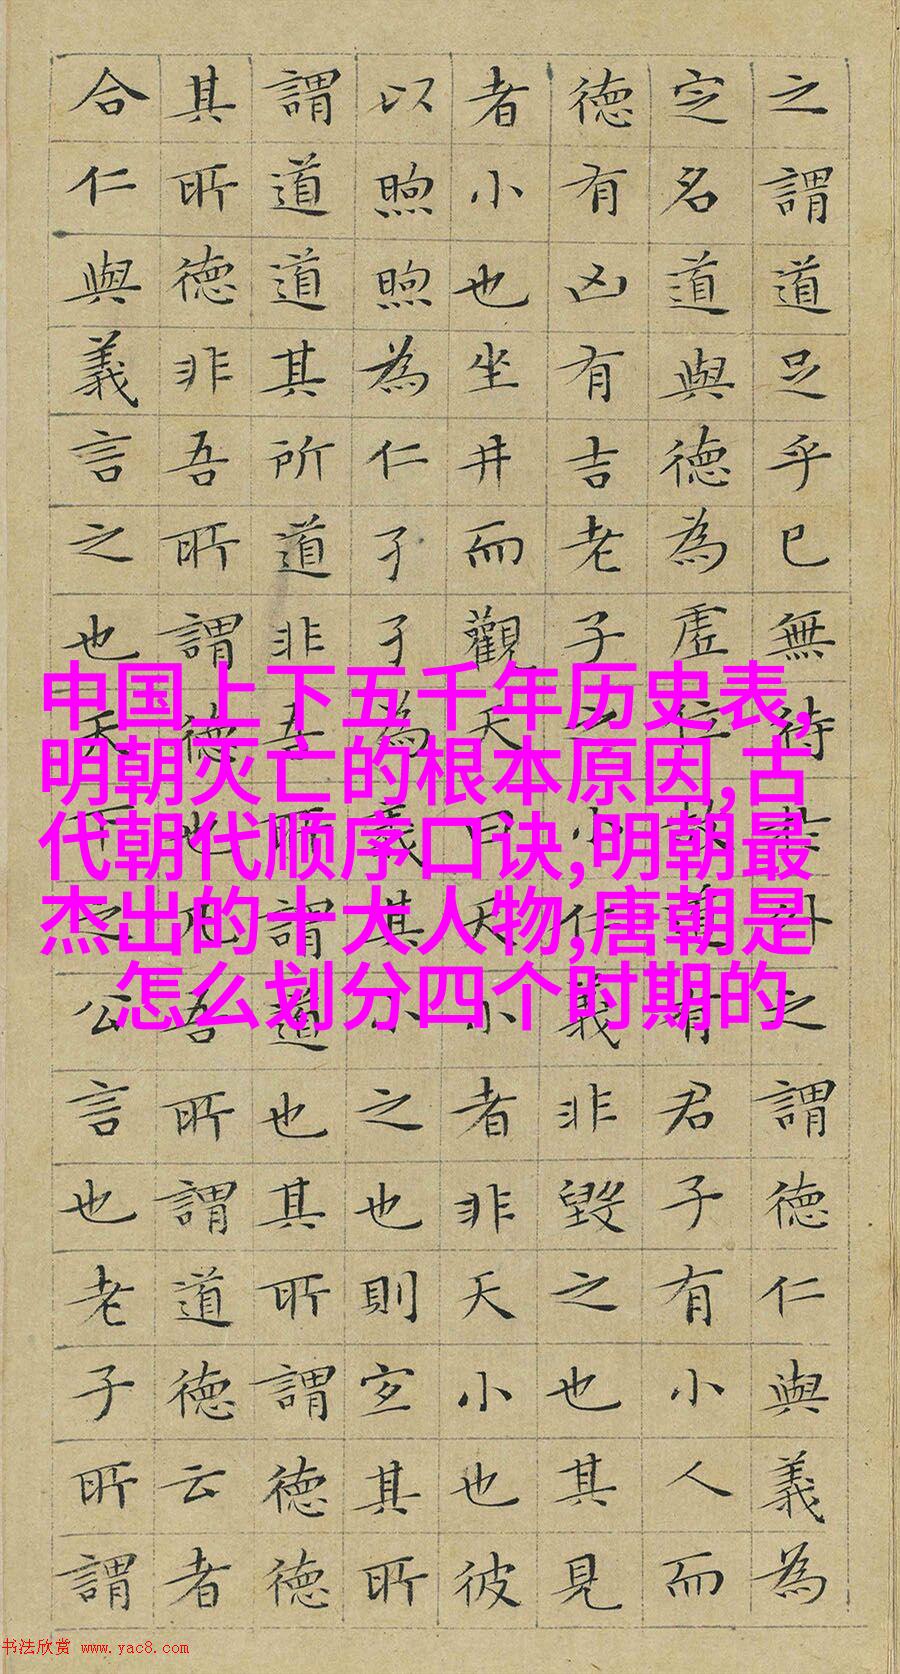 之謂道足乎已無待於外之謂德仁與義為
定名道與德為虛位故道有君子有小人而
德有凶有吉老子之小仁義非毀之也其見
者小也坐井而觀天曰天小者非天小也彼
以煦煦為仁孑孑為義其小之也則宜其所
謂道道其所道非吾所謂道也其所謂德德
其所德非吾所謂德也凡吾所謂道德云者
合仁與義言之也天下之公言也老子所謂
中国上下五千年历史表,
明朝灭亡的根本原因,古
代朝代顺序口诀,明朝最
杰出的十大人物,唐朝是
怎么划分四个时期的
书法欣赏 www.yac8.com